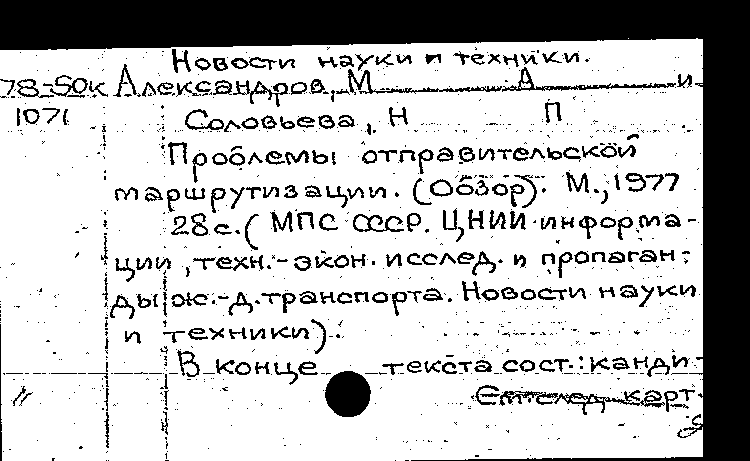 Новости науки и техники.
78-50к Александров, М А и
1071 Соловьева, Н П
Проблемы отправительской
маршрутизации. (Обзор). М., 1977
28 с. (МПС СССР. ЦНИИ информа-
ции, техн.-экон. исслед. и пропаган-
ды ж.-д. транспорта. Новости науки
и техники).
В конце текста сост.: канди-
См. след. карт.